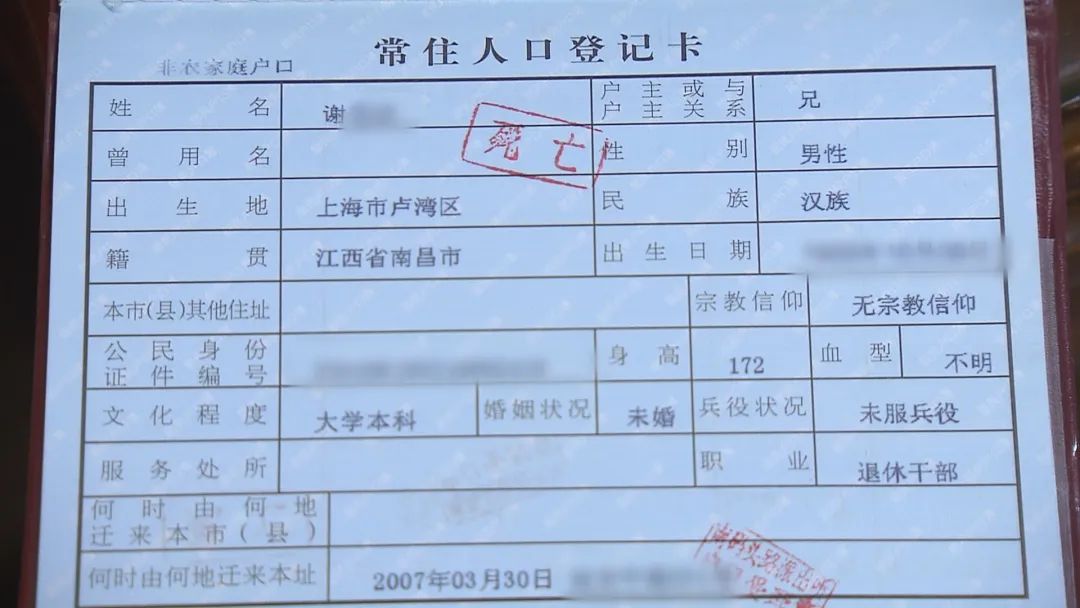 常住人口登记卡
非农家庭户口
姓名 谢 户主或与户主关系 兄
死亡
曾用名 性别 男性
出生地 上海市卢湾区 民族 汉族
籍贯 江西省南昌市 出生日期
本市(县)其他住址 宗教信仰 无宗教信仰
公民身份证件编号 身高 172 血型 不明
文化程度 大学本科 婚姻状况 未婚 兵役状况 未服兵役
服务处所 职业 退休干部
何时由何地迁来本市(县)
何时由何地迁来本址 2007年03月30日
码头路派出所